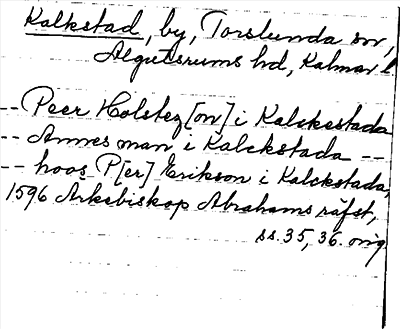 Kalkstad, by, Torslunda sn,
Algutsrums hd, Kalmar l.
-- Peer Holstez[on] i Kalckestada
-- Annes man i Kalckstada --
-- hoos P[er] Erikson i Kalckstada,
1596 Ärkebiskop Abrahams räfst,
ss. 35, 36. orig